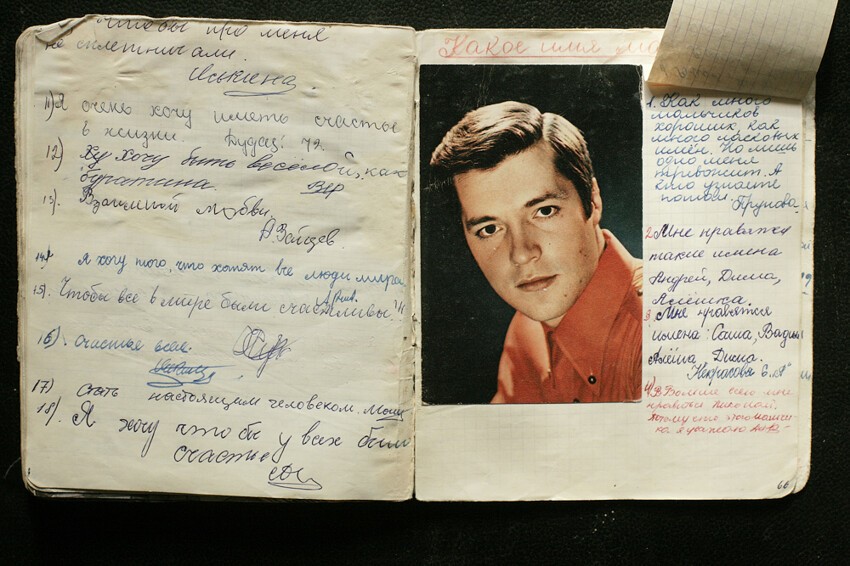 Чтобы про меня
не сплетничали.
11) Я очень хочу иметь счастье
в жизни.
12) Ху хочу быть весёлой, как
буратина.
13). Взаимной любви.
А Зайцев.
14) Я хочу того, что хотят все люди мира
15). Чтобы все в мире были счастливы!"
16). Счастья всем.
17) Стать настоящим человеком.
18). Я хочу чтобы у всех было
счастье
Какое имя
1. Как много
мальчиков
хороших, как
много ласковых
имён. Но лишь
одно меня
тревожит. А
кто узнаете
потом.
2. Мне нравятся
такие имена
Андрей, Дима,
Алёшка.
3. Мне нравятся
имена: Саша,
Алёша Дима.
Некрасова
4) Больше всего мне
нравится
потому что
66